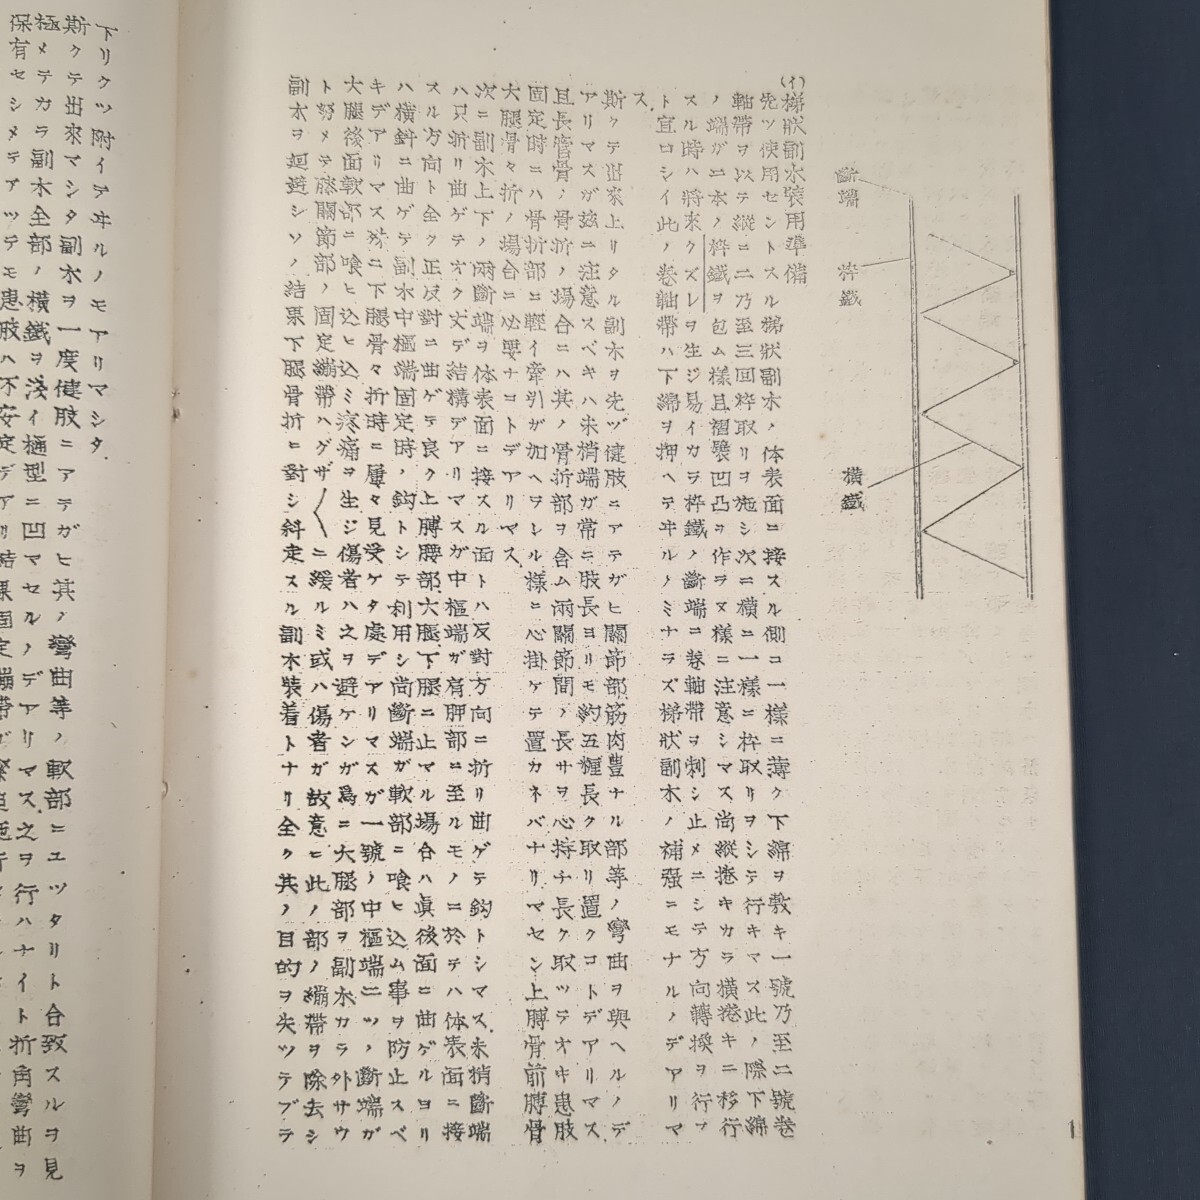 斷端
枠鐵
横鐵
(イ)梯狀副木裝用準備
先ヅ使用セントスル梯狀副木ノ体表面ニ接スル側ニ一樣ニ薄ク下綿ヲ敷キ一號乃至二號卷
軸帶ヲ以テ縱ニ二乃至三回枠取リヲ施シ次ニ横ニ一樣ニ枠取リヲシテ行キマス此ノ際下綿
ノ端ガ二本ノ枠鐵ヲ包ム樣且褶襞凹凸ヲ作ラヌ樣ニ注意シマス尚縱捲キカラ横捲キニ移行
スル時ハ將來クズレヲ生ジ易イカラ枠鐵ノ斷端ニ卷軸帶ヲ刺シ止メニシテ方向轉換ヲ行フ
ト宜ロシイ此ノ卷軸帶ハ下綿ヲ押ヘテヰルノミナラズ梯狀副木ノ補强ニモナルノデアリマ
ス
斯クテ出來上リタル副木ヲ先ヅ健肢ニアテガヒ關節部筋肉豊ナル部等ノ彎曲ヲ與ヘルノデ
アリマスガ玆ニ注意スベキハ末梢端ガ常ニ肢長ヨリモ約五糎長ク取リ置クコトデアリマス
且長管骨ノ骨折ノ場合ニハ其ノ骨折部ヲ含ム兩關節間ノ長サヲ心持チ長ク取ツテオキ患肢
固定時ニハ骨折部ニ輕イ牽引ガ加ヘラレル樣ニ心掛ケテ置カネバナリマセン上膊骨前膊骨
大腿骨々折ノ場合ニ必要ナコトデアリマス
次ニ副木上下ノ兩斷端ヲ体表面ニ接スル面トハ反對方向ニ折リ曲ゲテ鈎トシマス末梢斷端
ハ只折リ曲ゲテオク丈デ結構デアリマスガ中樞端ガ肩胛部ニ至ルモノニ於テハ体表面ニ接
スル方向ト全ク正反對ニ曲ゲテ良ク上膊腰部大腿下腿ニ止マル場合ハ眞後面ニ曲ゲルヨリ
ハ横斜ニ曲ゲテ副木中樞端固定時ノ鈎トシテ利用シ尚斷端ガ軟部ニ喰ヒ込ム事ヲ防止スベ
キデアリマス殊ニ下腿骨々折時ニ屢々見受ケタ處デアリマスガ一號ノ中樞端二ツノ斷端ガ
大腿後面軟部ニ喰ヒ込ミ疼痛ヲ生ジ傷者ハ之ヲ避ケンガ爲ニ大腿部ヲ副木カラ外サウ
ト努メテ膝關節部ノ固定繃帶ハグザ〱ニ緩ルミ或ハ傷者ガ故意ニ此ノ部ノ繃帶ヲ除去シ
副木ヲ廻避シソノ結果下腿骨折ニ對シ斜定スル副木裝着トナリ全ク其ノ目的ヲ失ツテブラ
下リクツ附イテヰルノモアリマシタ
斯クテ出來マシタ副木ヲ一度健肢ニアテガヒ其ノ彎曲等ノ軟部ニユツタリト合致スルヲ見
極メテカラ副木全部ノ横鐵ヲ淺イ樋型ニ凹マセルノデアリマス之ヲ行ハナイト折角彎曲ヲ